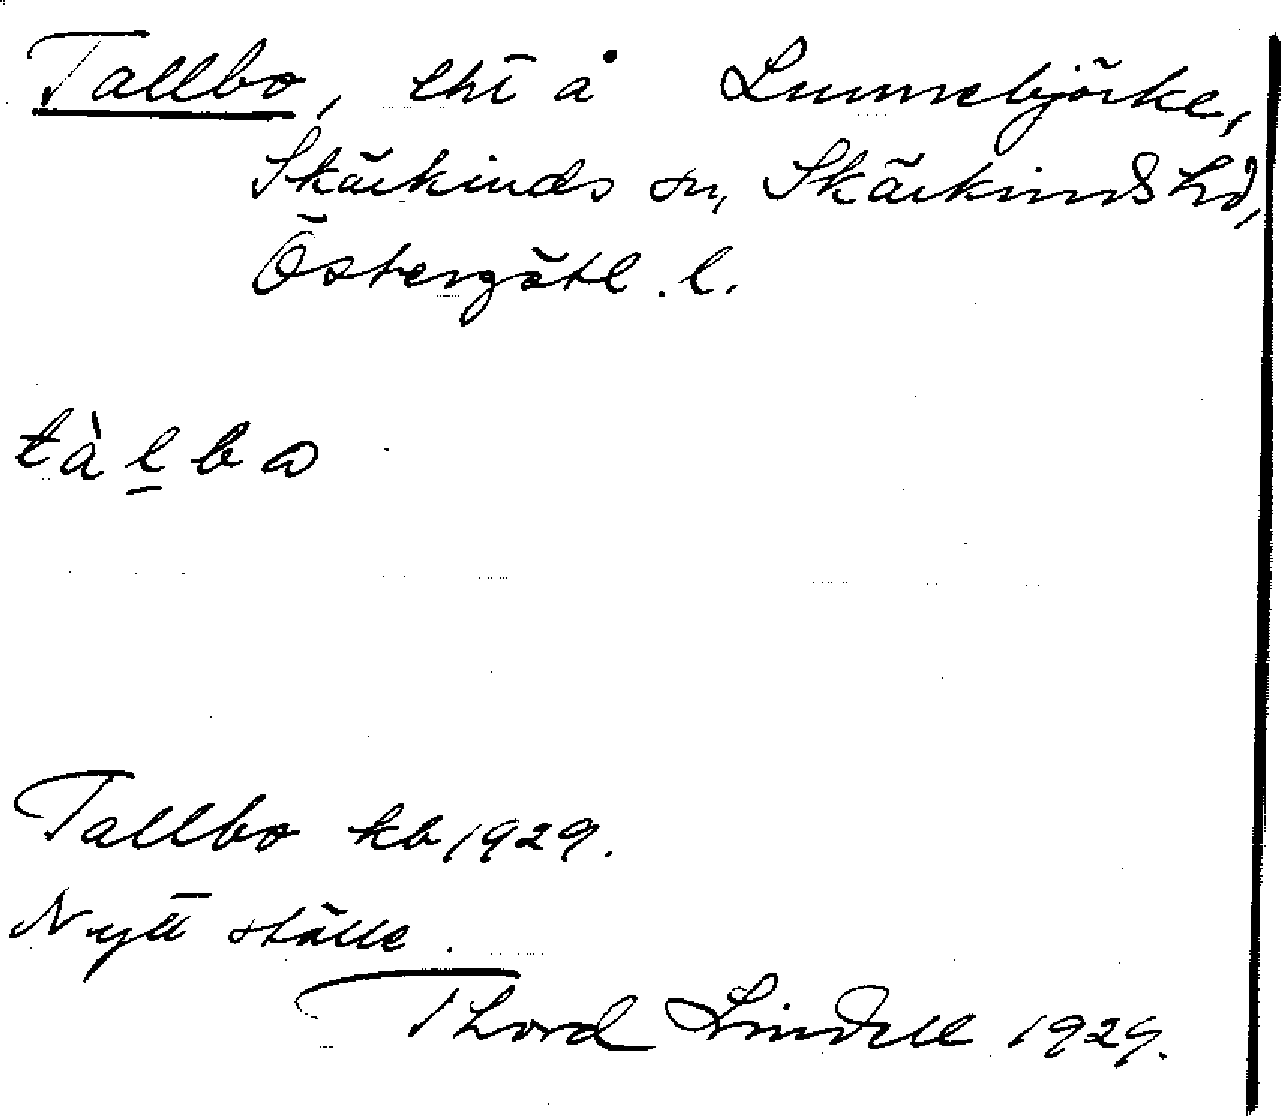 Tallbo, lht å Lunnebjörke,
Skärkinds sn, Skärkinds hd,
Östergötl. l.
tàl̠bɷ
Tallbo kb 1929.
Nytt ställe.
Thord Lindell 1929.